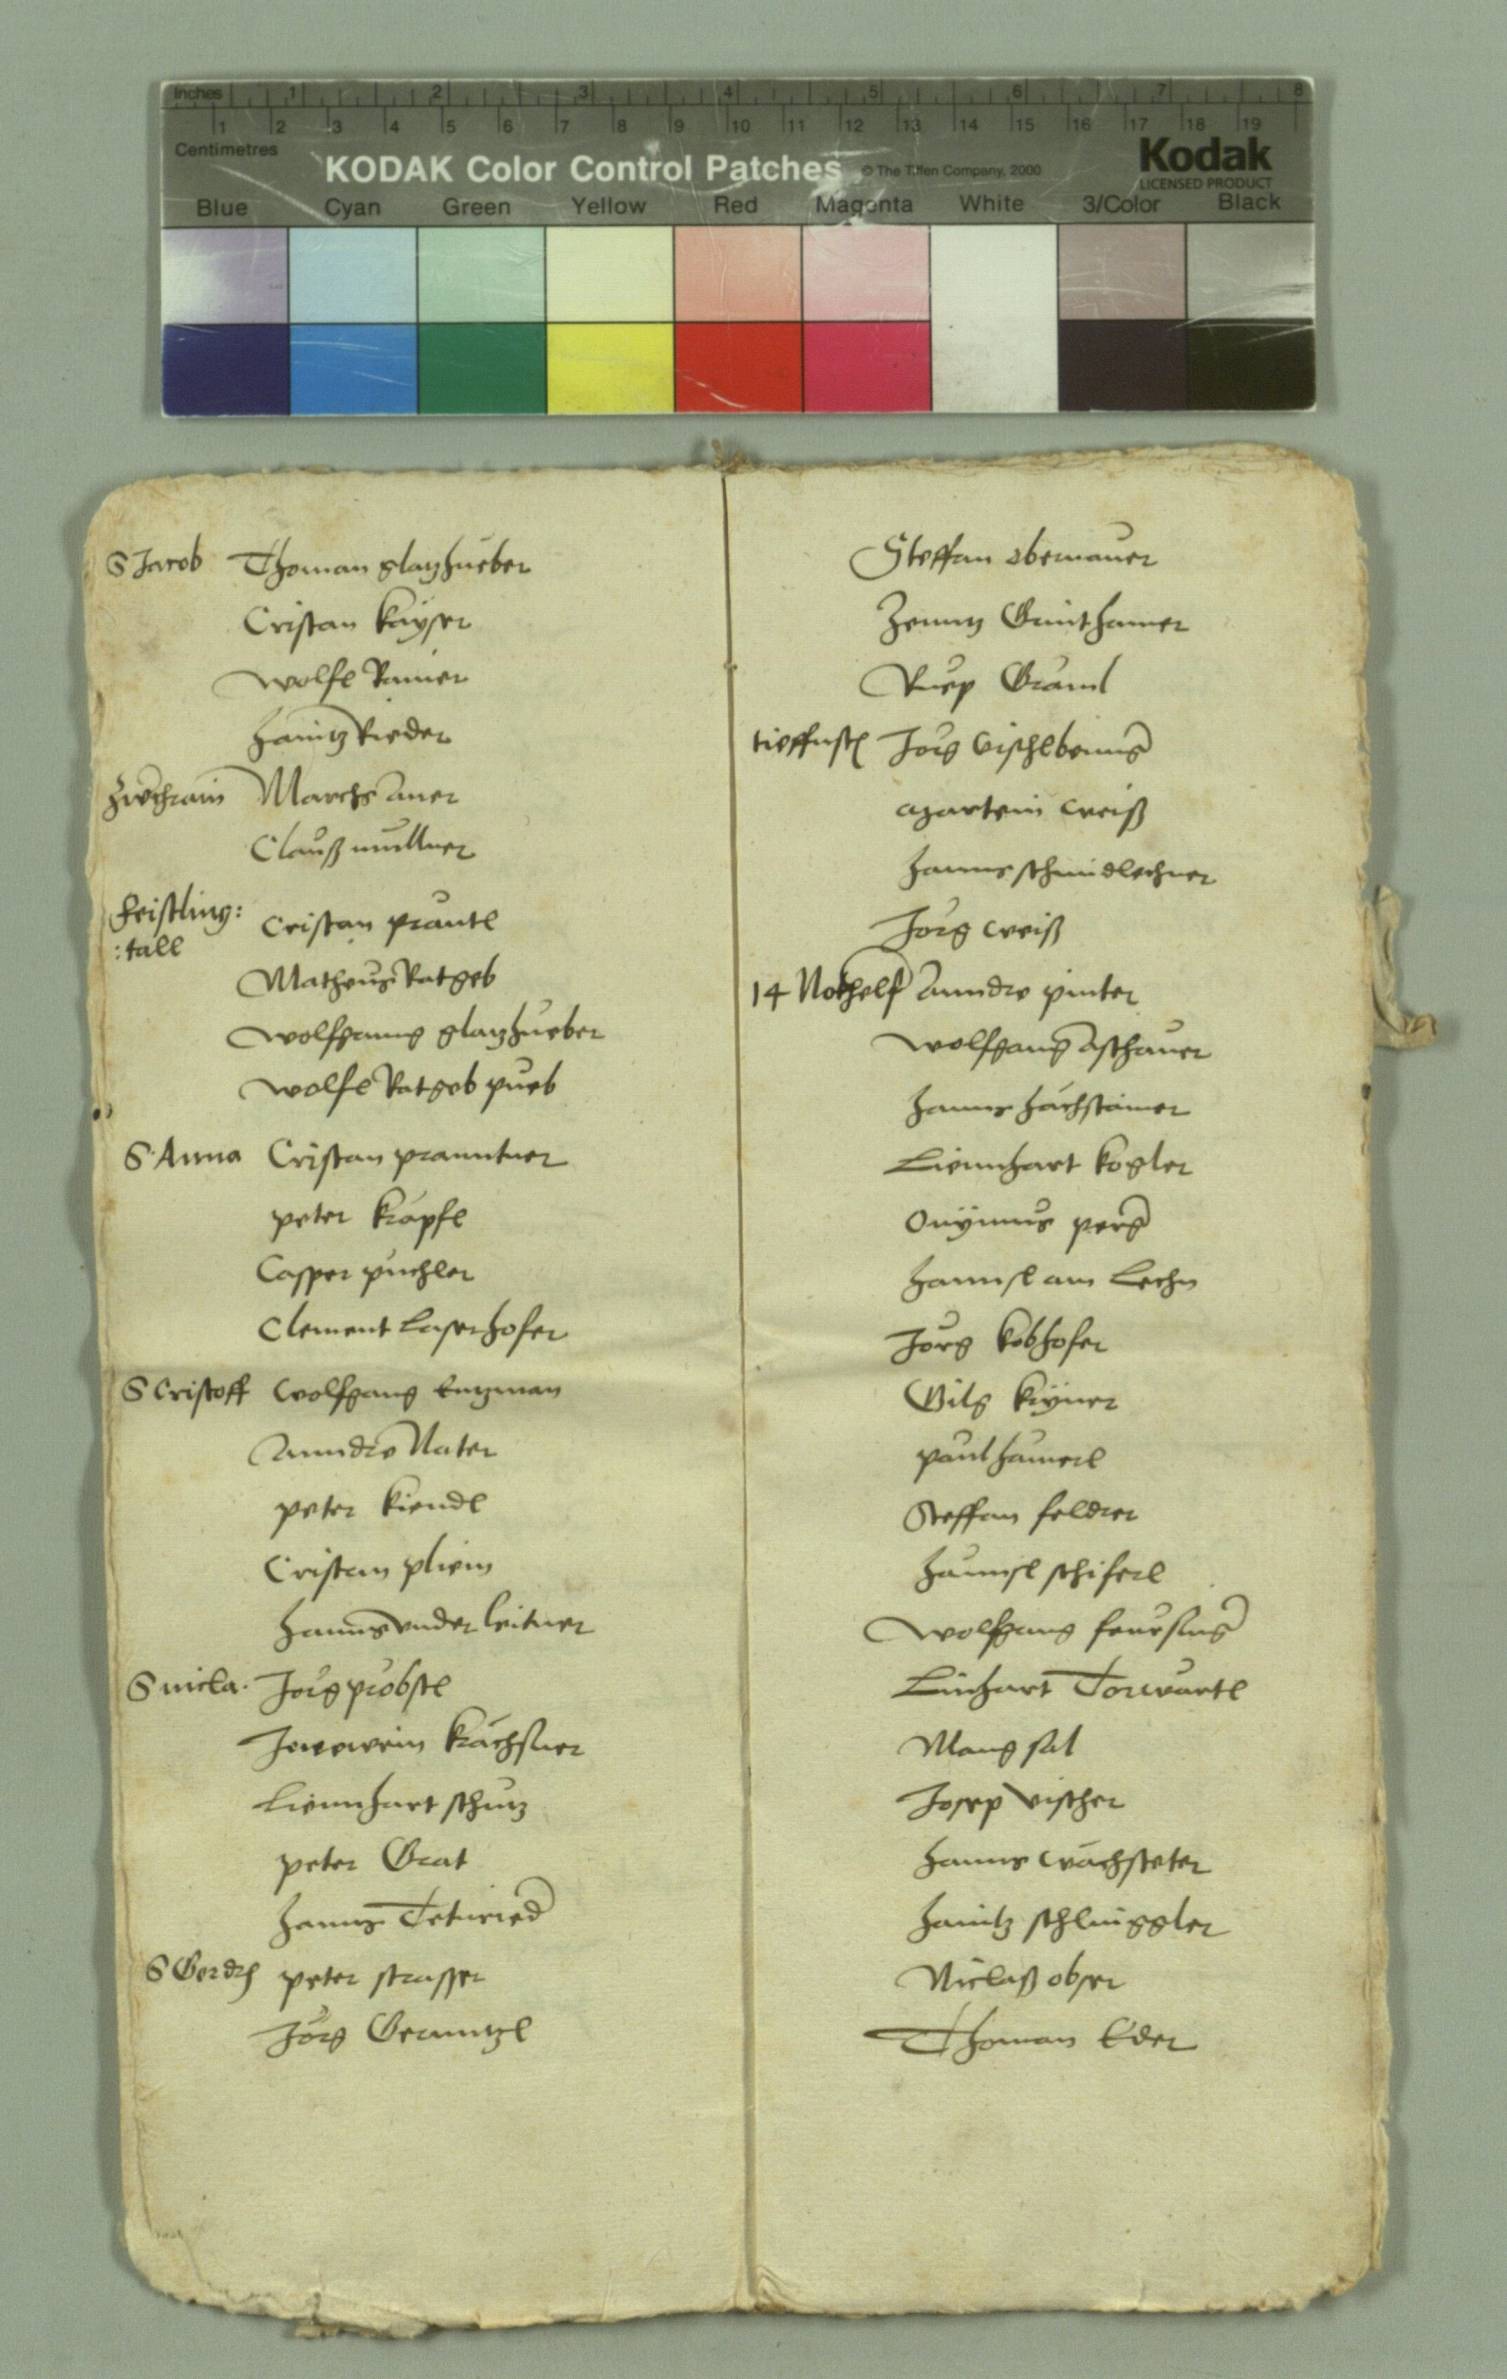 Inches 1 2 3 4 5 6 7 8
1 2 3 4 5 6 7 8 9 10 11 12 13 14 15 16 17 18 19
Centimetres
KODAK Color Control Patches © The Tiffen Company, 2000 Kodak
LICENSED PRODUCT
Blue Cyan Green Yellow Red Magenta White 3/Color Black
S Jacob Thoman glatzhueber
Cristan kayser
wolfl Rainer
Hanntz Rieder
Marchs Auer
Clauß mullner
Feistling:
:tall
Cristan prantl
Matheus Ratgeb
wolfganng glatzhueber
wolfl Ratgeb pueb
S Anna Cristan pranntner
peter krapfl
Casper puchler
Clement Laserhofer
S Cristoff wolfgang Entzman
Anndre Nater
peter kiendl
Cristan pliem
Hanns under leitner
S nicla. Jörg probstl
krachsner
Liennhart schutz
peter Grat
Hanns
S Gerdr peter strasser
Jörg Geranntzl
Steffan obernauer
Gunthamer
Ruep Graml
tieffnst Jörg
martein weiß
Hanns schmidlechner
Jörg weiß
14 Nothelf Anndre pinter
wolfgang Aschauer
Hanns
Liennhart kogler
perg
Hannsl am Lechn
Jörg kobhofer
Gilg kyner
paul hamerl
Steffan feldrer
Hannsl schiferl
wolfgang feursing
Linhart Torwartl
Mang sal
Josep vischer
Hanns wachsteter
Hanntz schlniggler
Niclaß obser
Thoman Eder